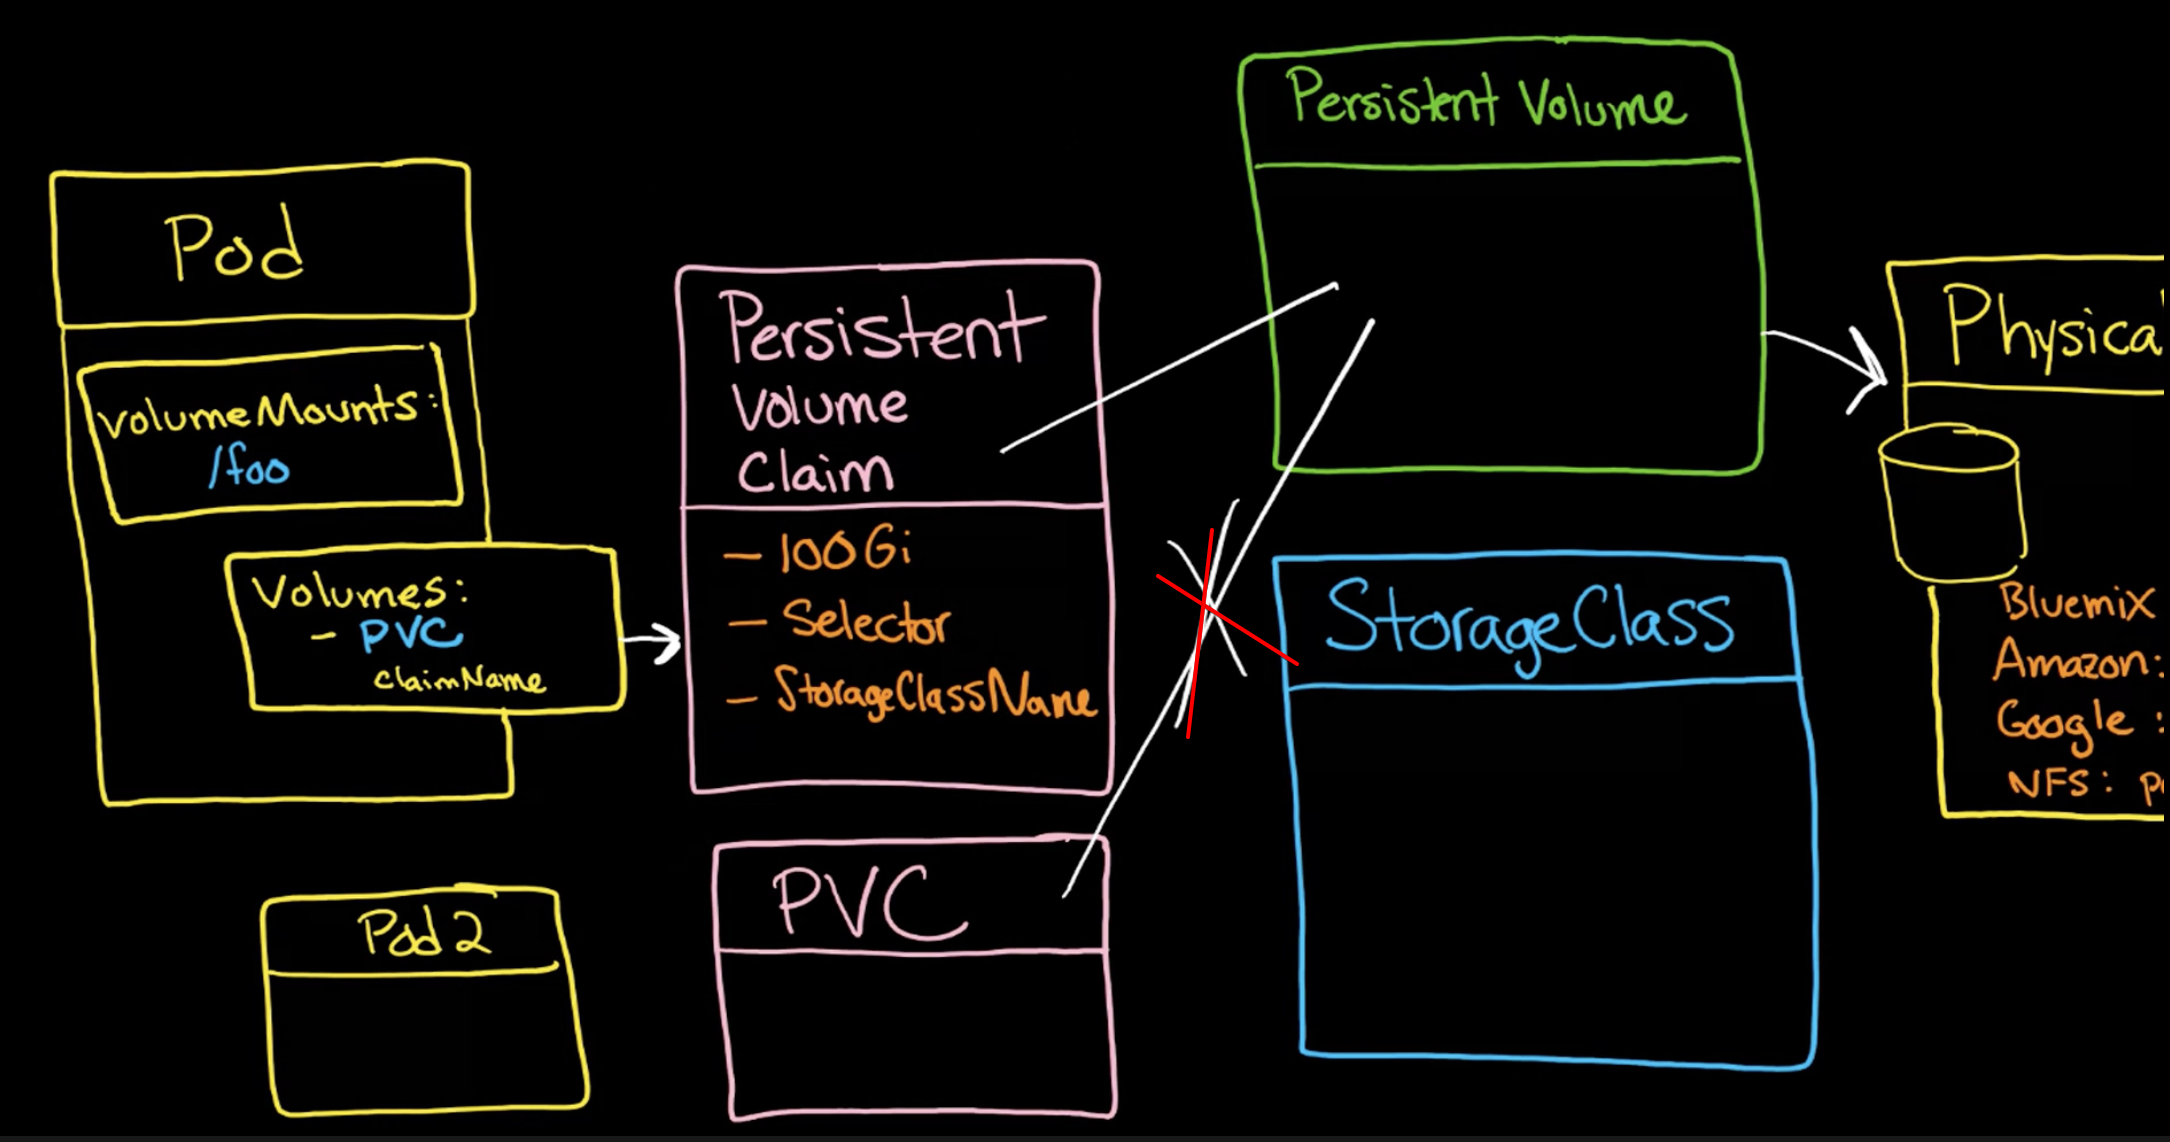 Pod
volumeMounts:
/foo
Volumes:
- PVC
claimName
Pod 2
Persistent
Volume
Claim
- 100Gi
- Selector
- StorageClassName
PVC
Persistent Volume
StorageClass
Physical
Bluemix
Amazon:
Google :
NFS :